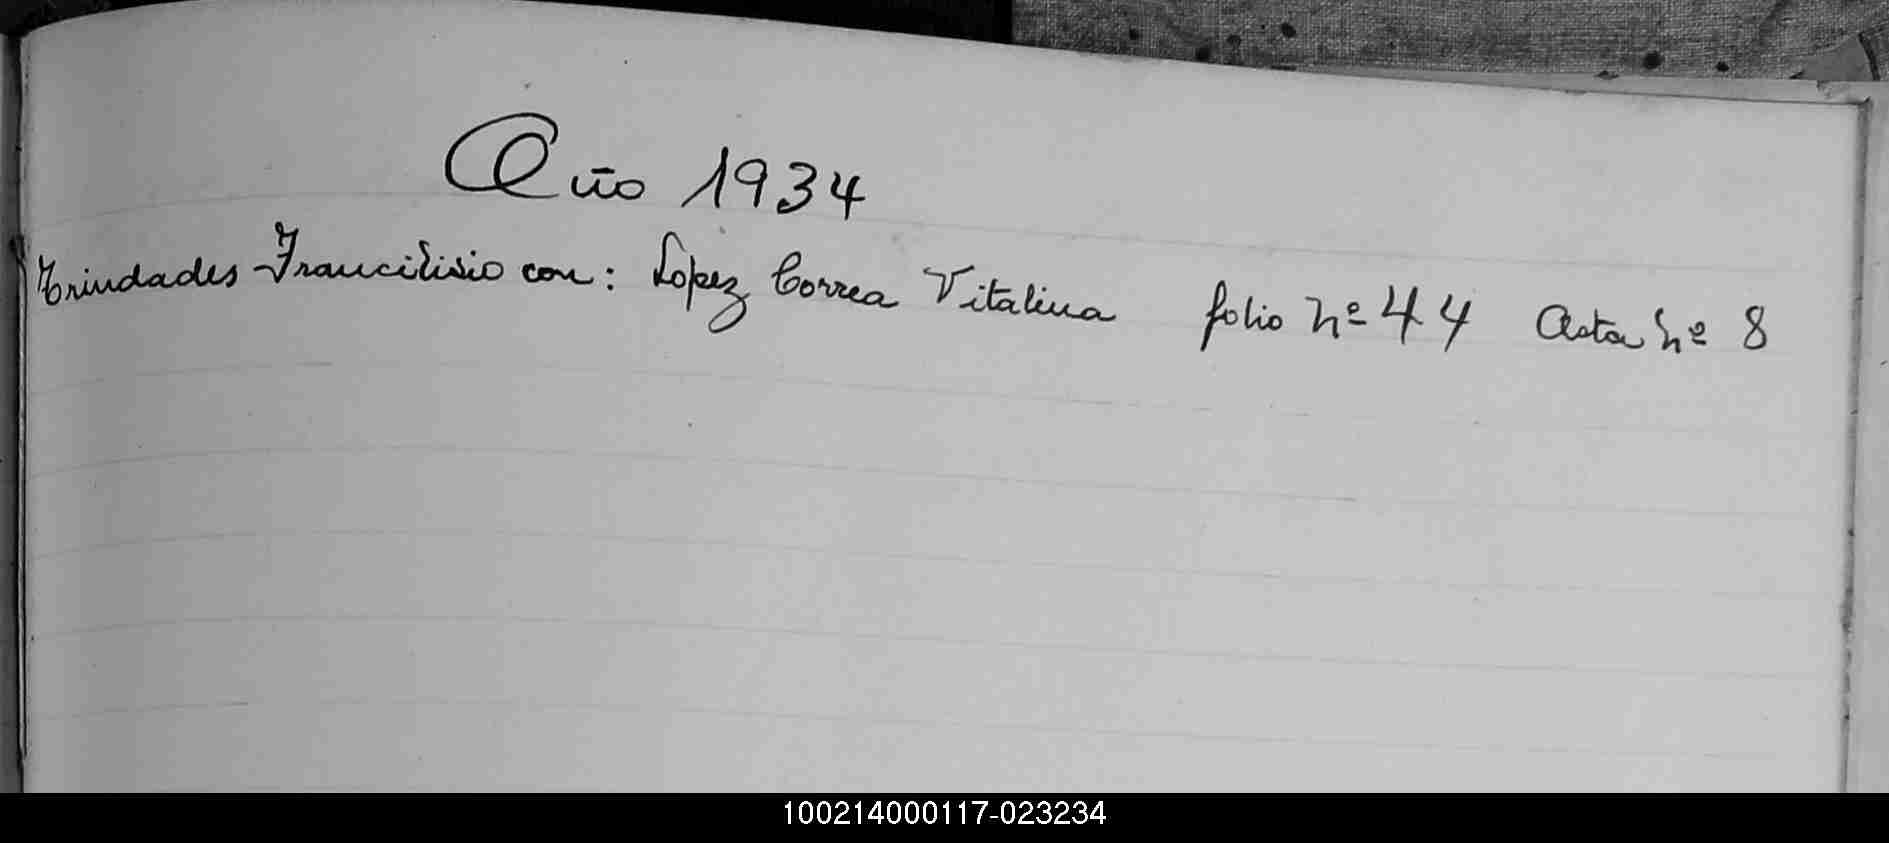 Año 1934
Trindades Francilisio con: Lopez Correa Vitalina folio nº 44 Acta nº 8
100214000117-023234